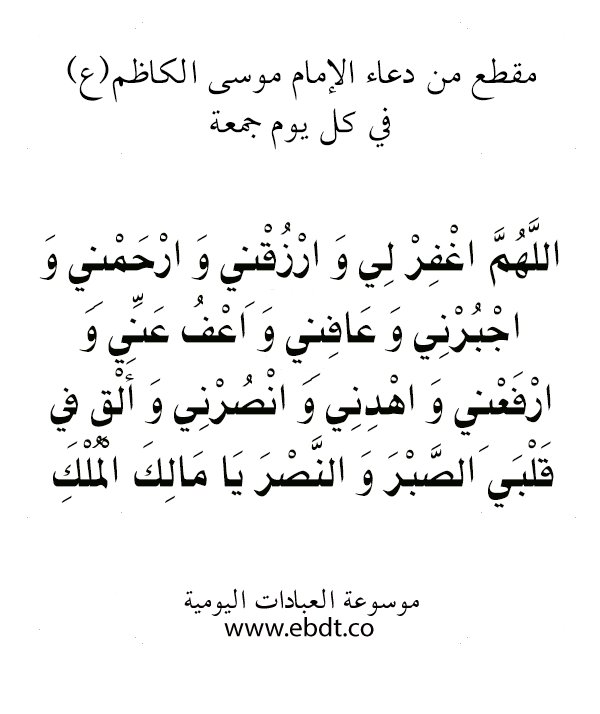 مقطع من دعاء الإمام موسى الكاظم(ع)
في كل يوم جمعة
اللَّهُمَّ اغْفِرْ لِي وَ ارْزُقْني وَ ارْحَمْني وَ
اجْبُرْنِي وَ عَافِني وَ اَعْفُ عَنِّي وَ
ارْفَعْني وَ اهْدِنِي وَ انْصُرْنِي وَ ألْقِ في
قَلْبَي الصَّبْرَ وَ النَّصْرَ يَا مَالِكَ الْمُلْكِ
موسوعة العبادات اليومية
www.ebdt.co